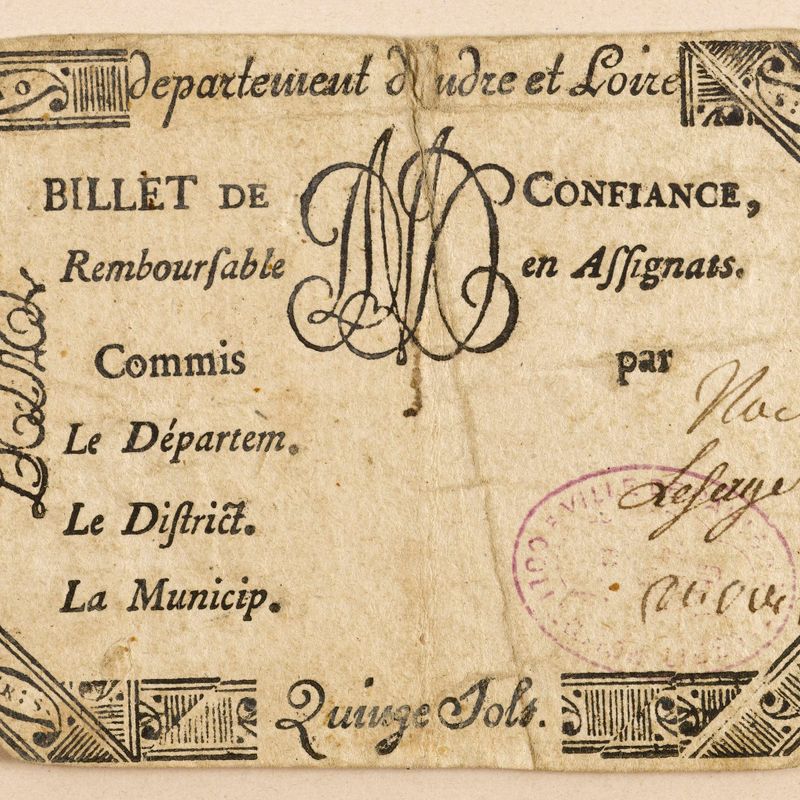 departement d'Indre et Loire
BILLET DE CONFIANCE,
Rembourſable en Aſſignats.
Commis par
Le Départem.
Lesage
Le Diſtrict.
La Municip.
Quinze Sols.